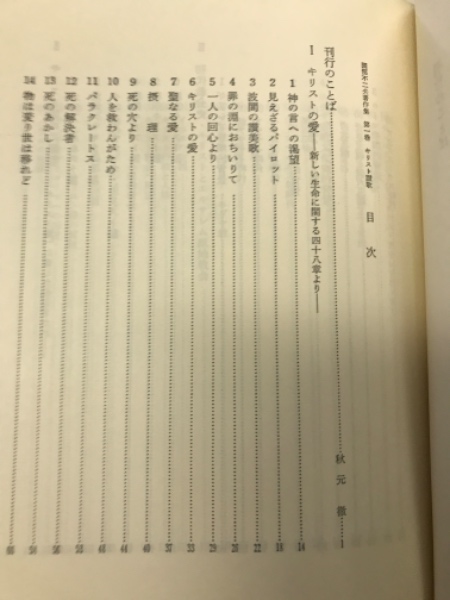 著作集 第一巻 キリスト讃歌
目次
刊行のことば 秋元 徹 1
1 キリストの愛――新しい生命に関する四十八章より――
1 神の言への渇望 14
2 見えざるパイロット 18
3 波間の讃美歌 22
4 罪の淵におちいりて
5 一人の回心より 29
6 キリストの愛 33
7 聖なる愛 37
8 摂理 40
9 死の穴より 44
10 人を救わんがため
11 パラクレートス
12 死の解決者
13 死のあかし
14 物は変り世は移れど